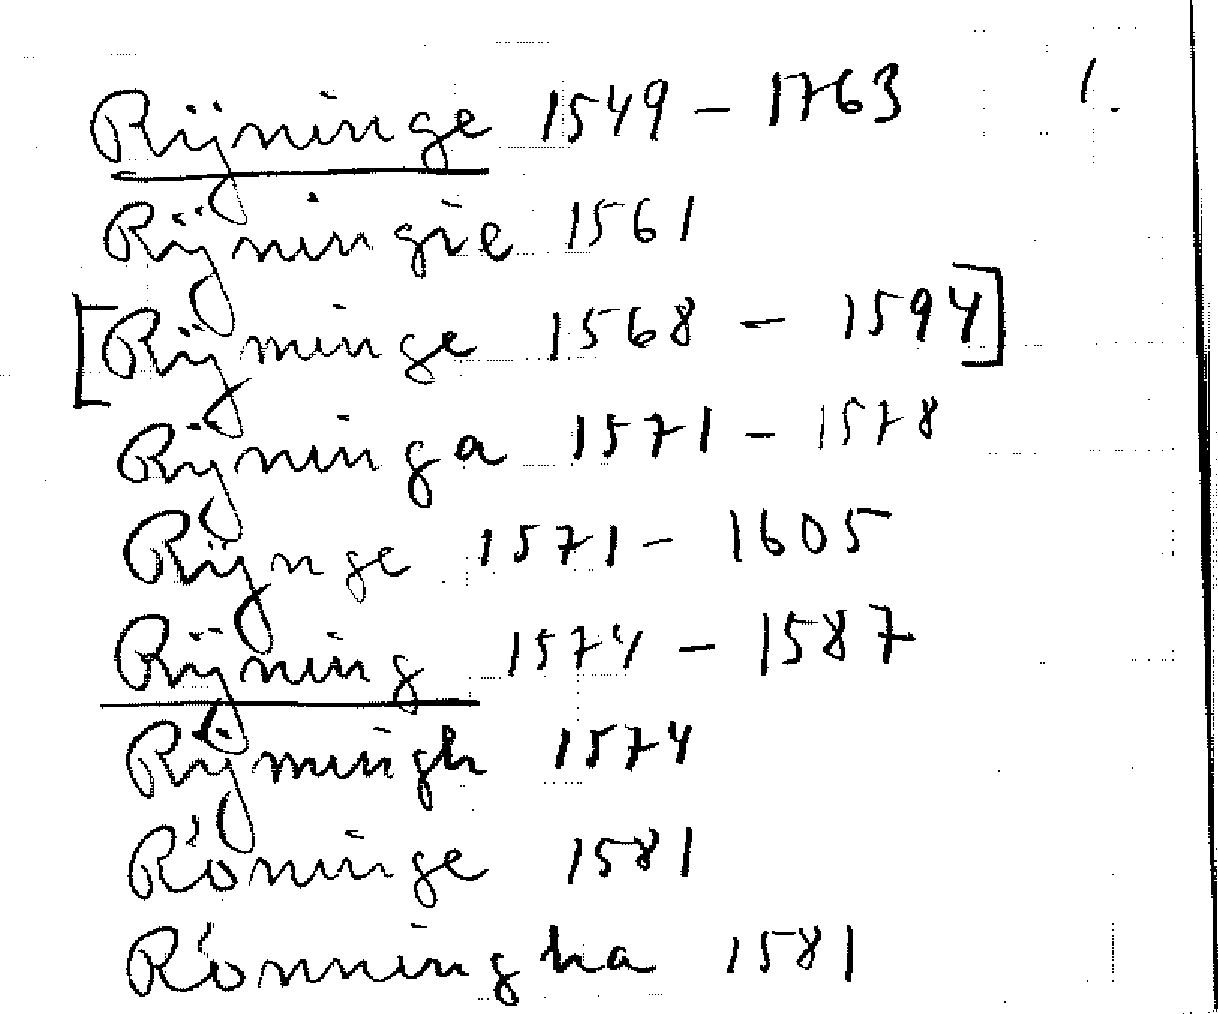 Rijninge 1549 - 1763 1.
Rijningie 1561
[Rijminge 1568 - 1594]
Rijninga 1571 - 1578
Rijnge 1571 - 1605
Rijning 1574 - 1587
Rijmingh 1574
Röninge 1581
Rönningha 1581